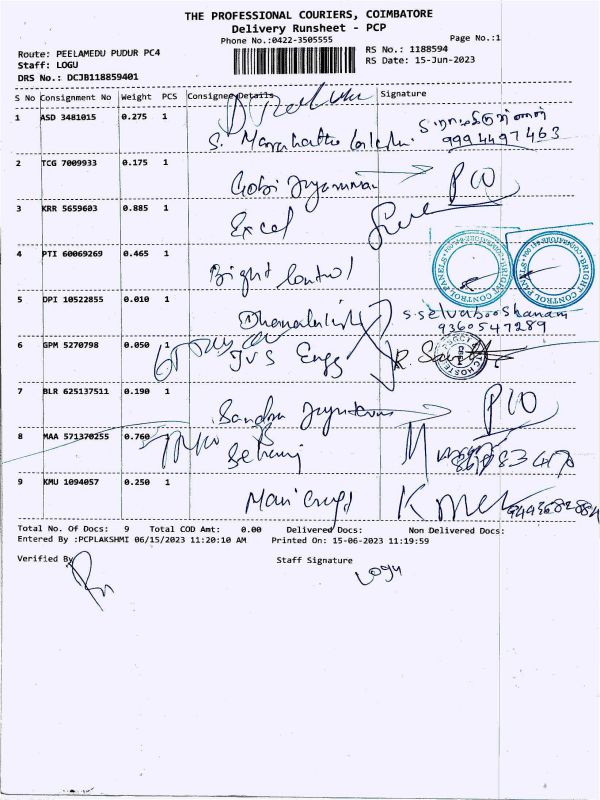 THE PROFESSIONAL COURIERS, COIMBATORE
Delivery Runsheet - PCP
Phone No.:0422-3505555
Page No.:1
Route: PEELAMEDU PUDUR PC4
RS No.: 1188594
Staff: LOGU
RS Date: 15-Jun-2023
DRS No.: DCJB118859401
S No Consignment No Weight PCS Consignee Details Signature
1 ASD 3481015 0.275 1
S.
9994497463
2 TCG 7009933 0.175 1
Gobi
3 KRR 5659603 0.885 1
Excel
4 PTI 60069269 0.465 1
Bright Control
BRIGHT CONTROL PANELS
BRIGHT CONTROL PANELS
5 DPI 10522855 0.010 1
S.Selvabooshanam
9360547289
6 GPM 5270798 0.050 1
JVS Engg
7 BLR 625137511 0.190 1
8 MAA 571370255 0.760 1
9 KMU 1094057 0.250 1
Total No. Of Docs: 9 Total COD Amt: 0.00 Delivered Docs: Non Delivered Docs:
Entered By :PCPLAKSHMI 06/15/2023 11:20:10 AM Printed On: 15-06-2023 11:19:59
Verified By
Staff Signature
Logu